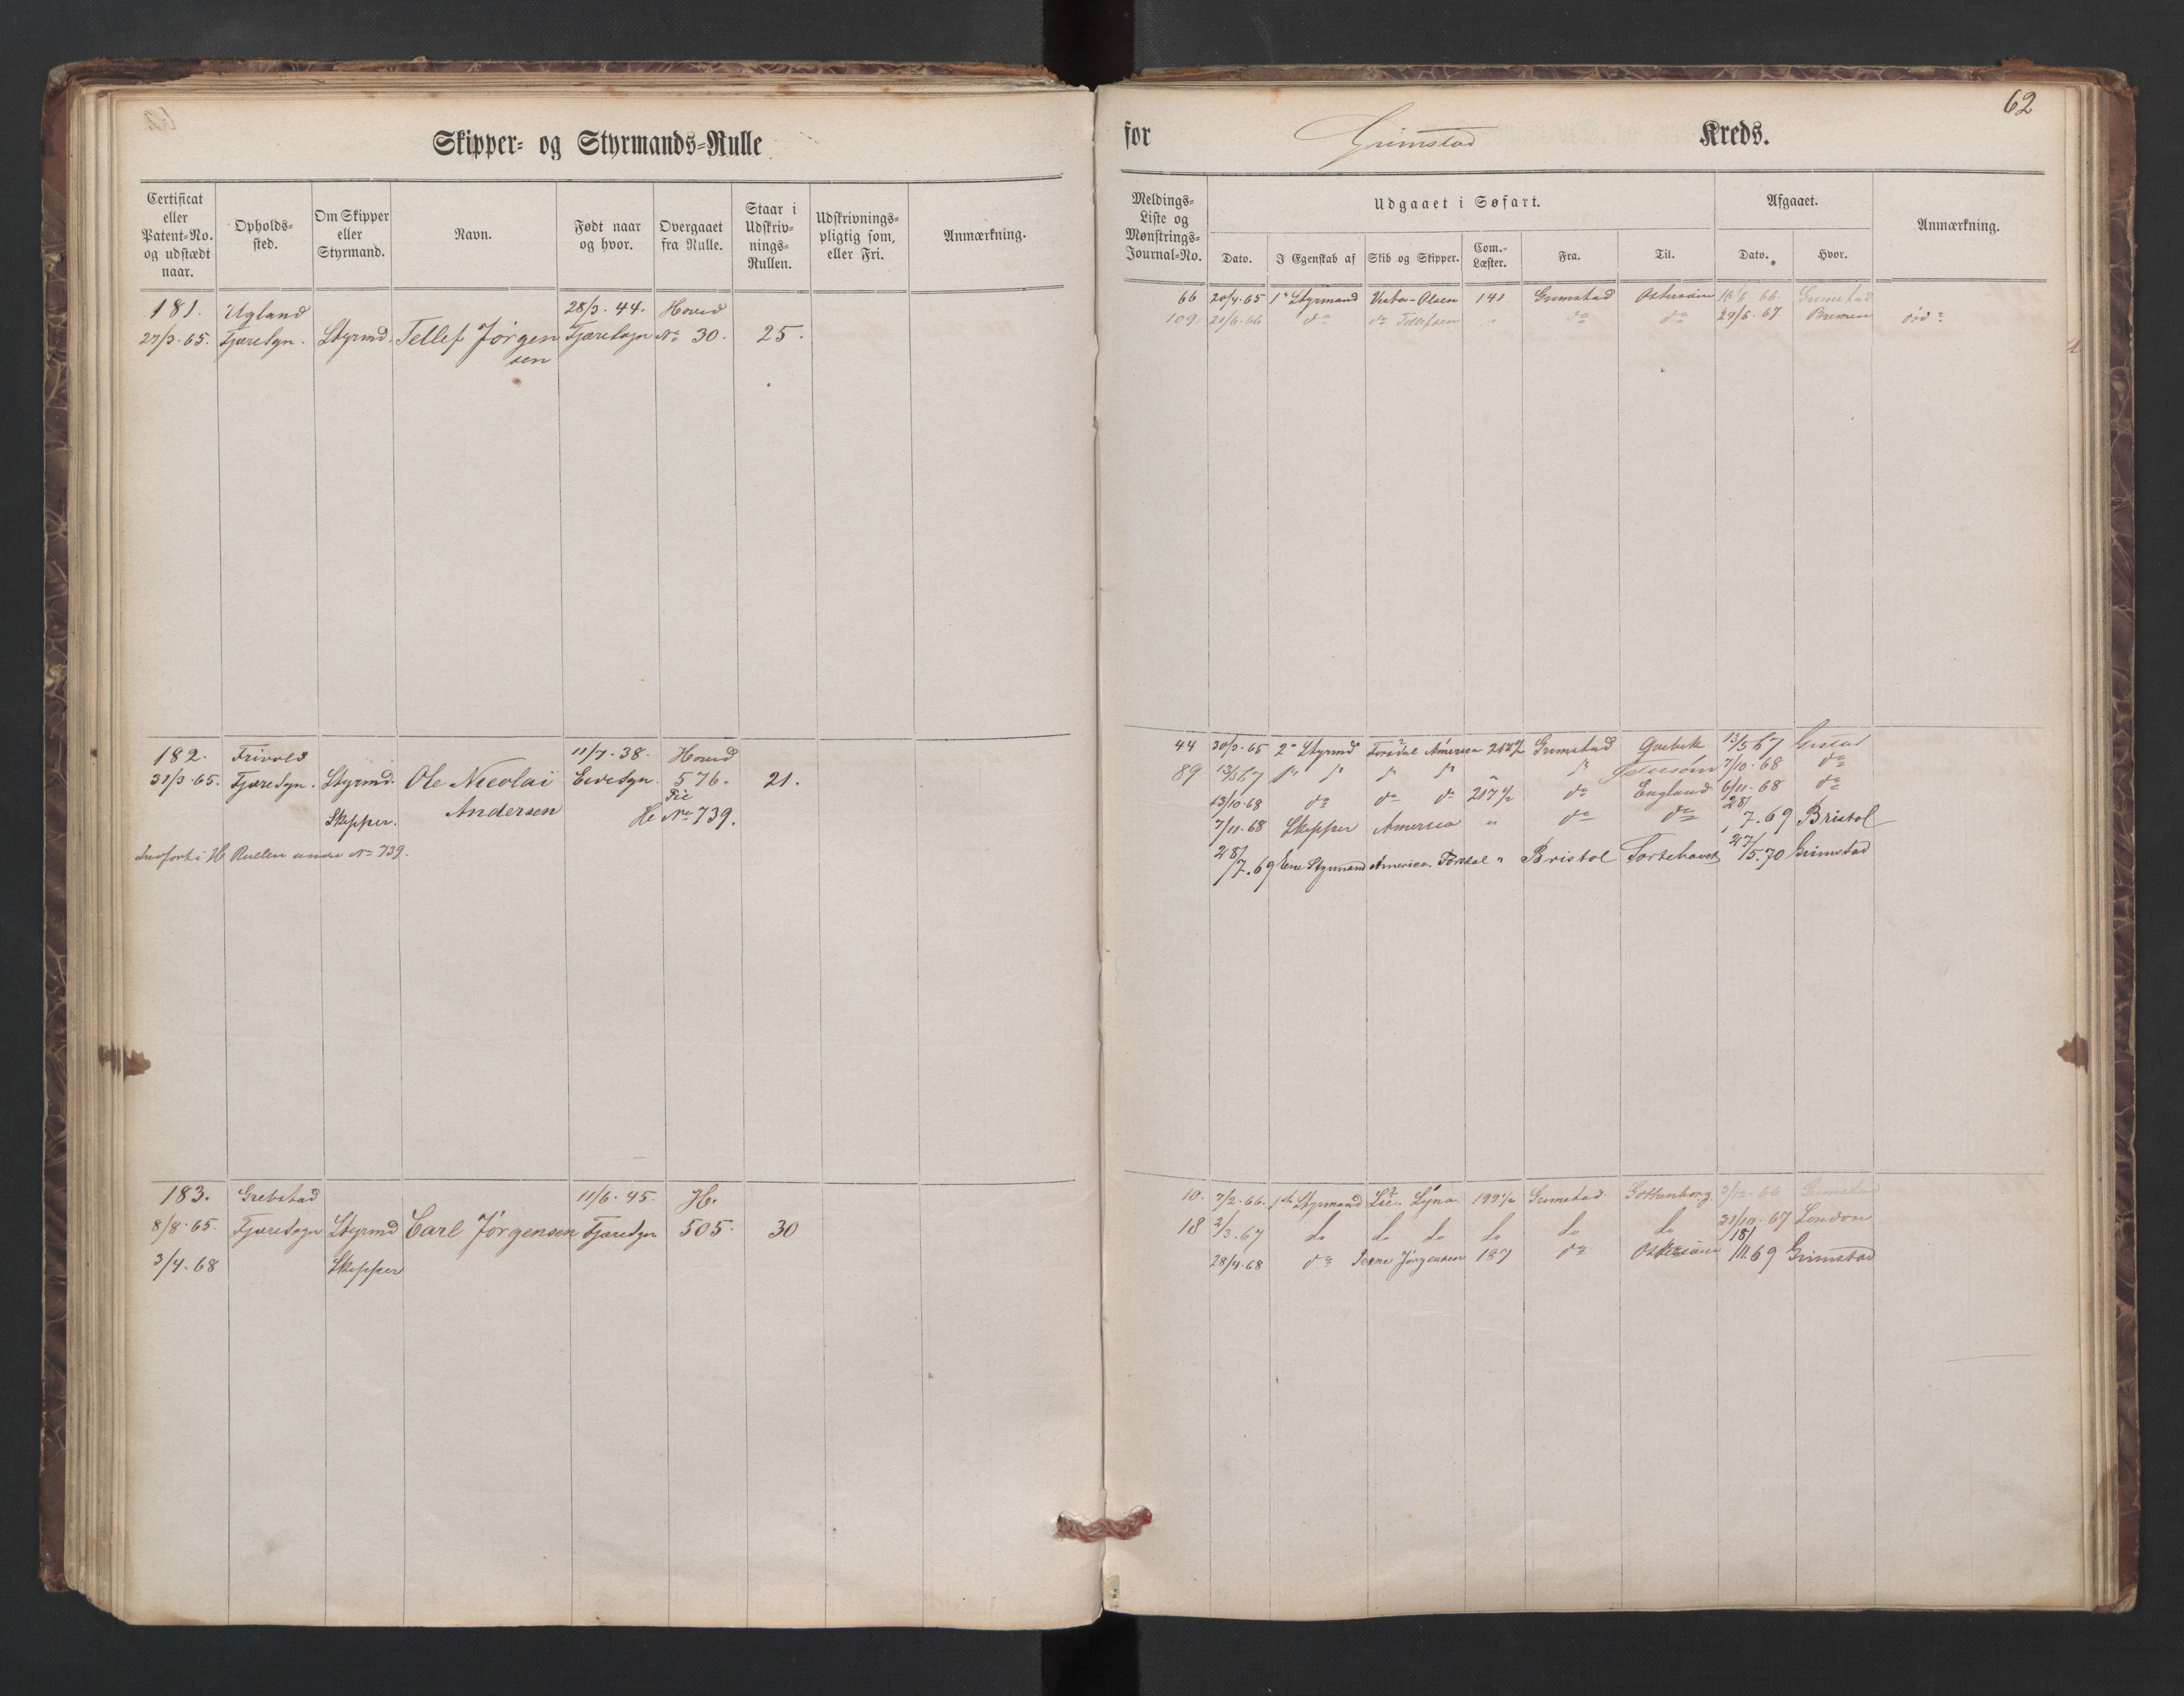 62
Skipper- og Styrmands-Rulle
for Grimstad Kreds.
Certificat eller Patent-No. og udstædt naar.
Opholds-sted.
Om Skipper eller Styrmand.
Navn.
Født naar og hvor.
Overgaaet fra Rulle.
Staar i Udskriv-nings-Rullen.
Udskrivnings-pligtig som, eller Fri.
Anmærkning.
Meldings-Liste og Mønstrings-Journal-No.
Udgaaet i Søfart.
Afgaaet.
Anmærkning.
Dato. I Egenskab af Skib og Skipper. Com.-Læster. Fra. Til. Dato. Hvor.
181. Ugland 28/3. 44. Hoved
27/3. 65. Fjæresgn. Styrmd. Tellef Jørgen Fjæresogn No 30. 25.
sen
66 20/4. 65 1ste Styrmand Vesta - Olsen 141 Grimstad Østersøen 16/6 66. Grimstad
109. 21/6. 66 do do Tellefsen " do do 24/5. 67 Bremen død?
182. Frivold 11/7. 38. Hoved
31/3. 65. Fjæresgn. Styrmd. Ole Nicolai Eidesgn. 576. 21.
Skipper. Andersen H No 739.
Indført i H Rullen under No 739.
44 30/3. 65 2den Styrmd Forsdal America 217½ Grimstad Quebek 13/5 67 Grimstad
89 13/5 67 Østersøen 7/10. 68 do
13/10. 68 do do do 217½ do England 6/11. 68 do
7/11. 68 Skipper America " do do 28/7. 69 Bristol
28/7. 69 Ene Styrmand America. Forsdal " Bristol Sortehavet 27/5. 70 Grimstad
183. Grebstad 11/6. 45. H.
8/8. 65. Fjæresogn Styrmd Carl Jørgensen Fjæresgn 505. 30
3/4. 68 Skipper
10. 7/2. 66. 1ste Styrmand 199½ Grimstad Gothenborg 3/12. 66 Grimstad
18 2/3. 67 do do do do do do 31/10. 67 London
28/4. 68 do Jørgensen 187 do Østersøen 18/11. 69 Grimstad